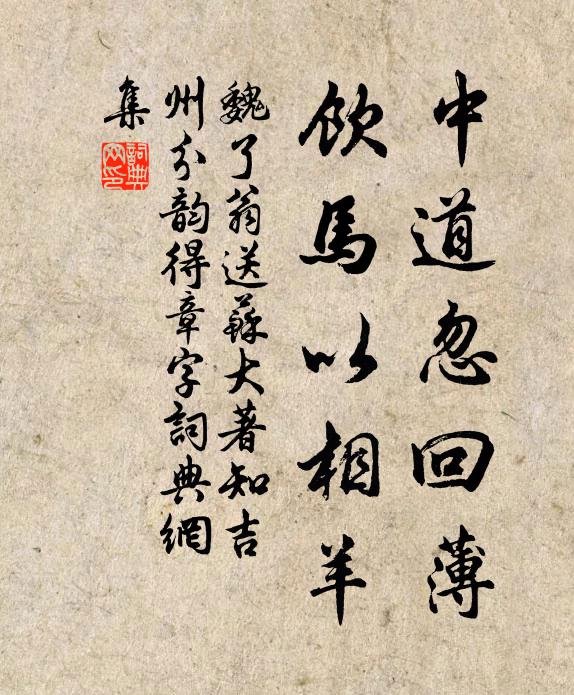 中道忽回薄
飲馬以相羊
魏了翁送蘇大著知吉
州分韵得章字詞典網
集
詞典
网印